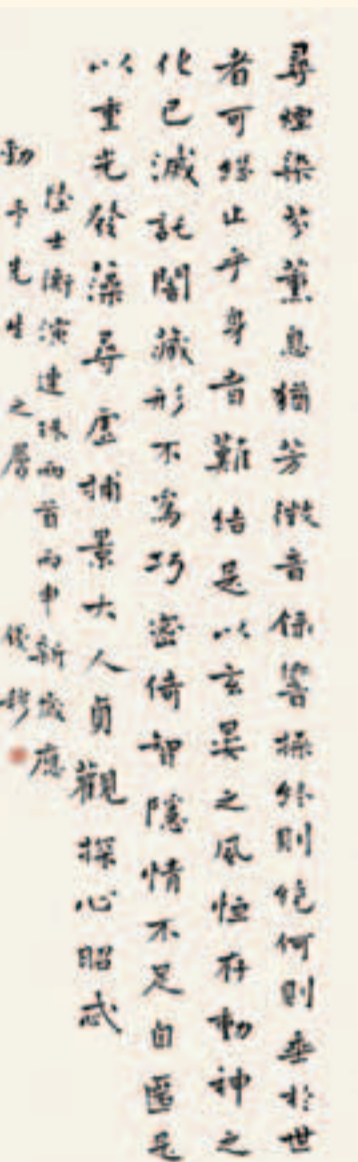 尋煙染芬薰息猶芳徵音録響操終則絶何則垂於世
者可繼止乎身者難結是以玄晏之風恒存動神之
化已滅託闇藏形不為巧密倚智隱情不足自匿是
以重光發藻尋虛捕景大人貞觀探心昭忒
陸士衡演連珠兩首丙申新歲應
予先生之屬